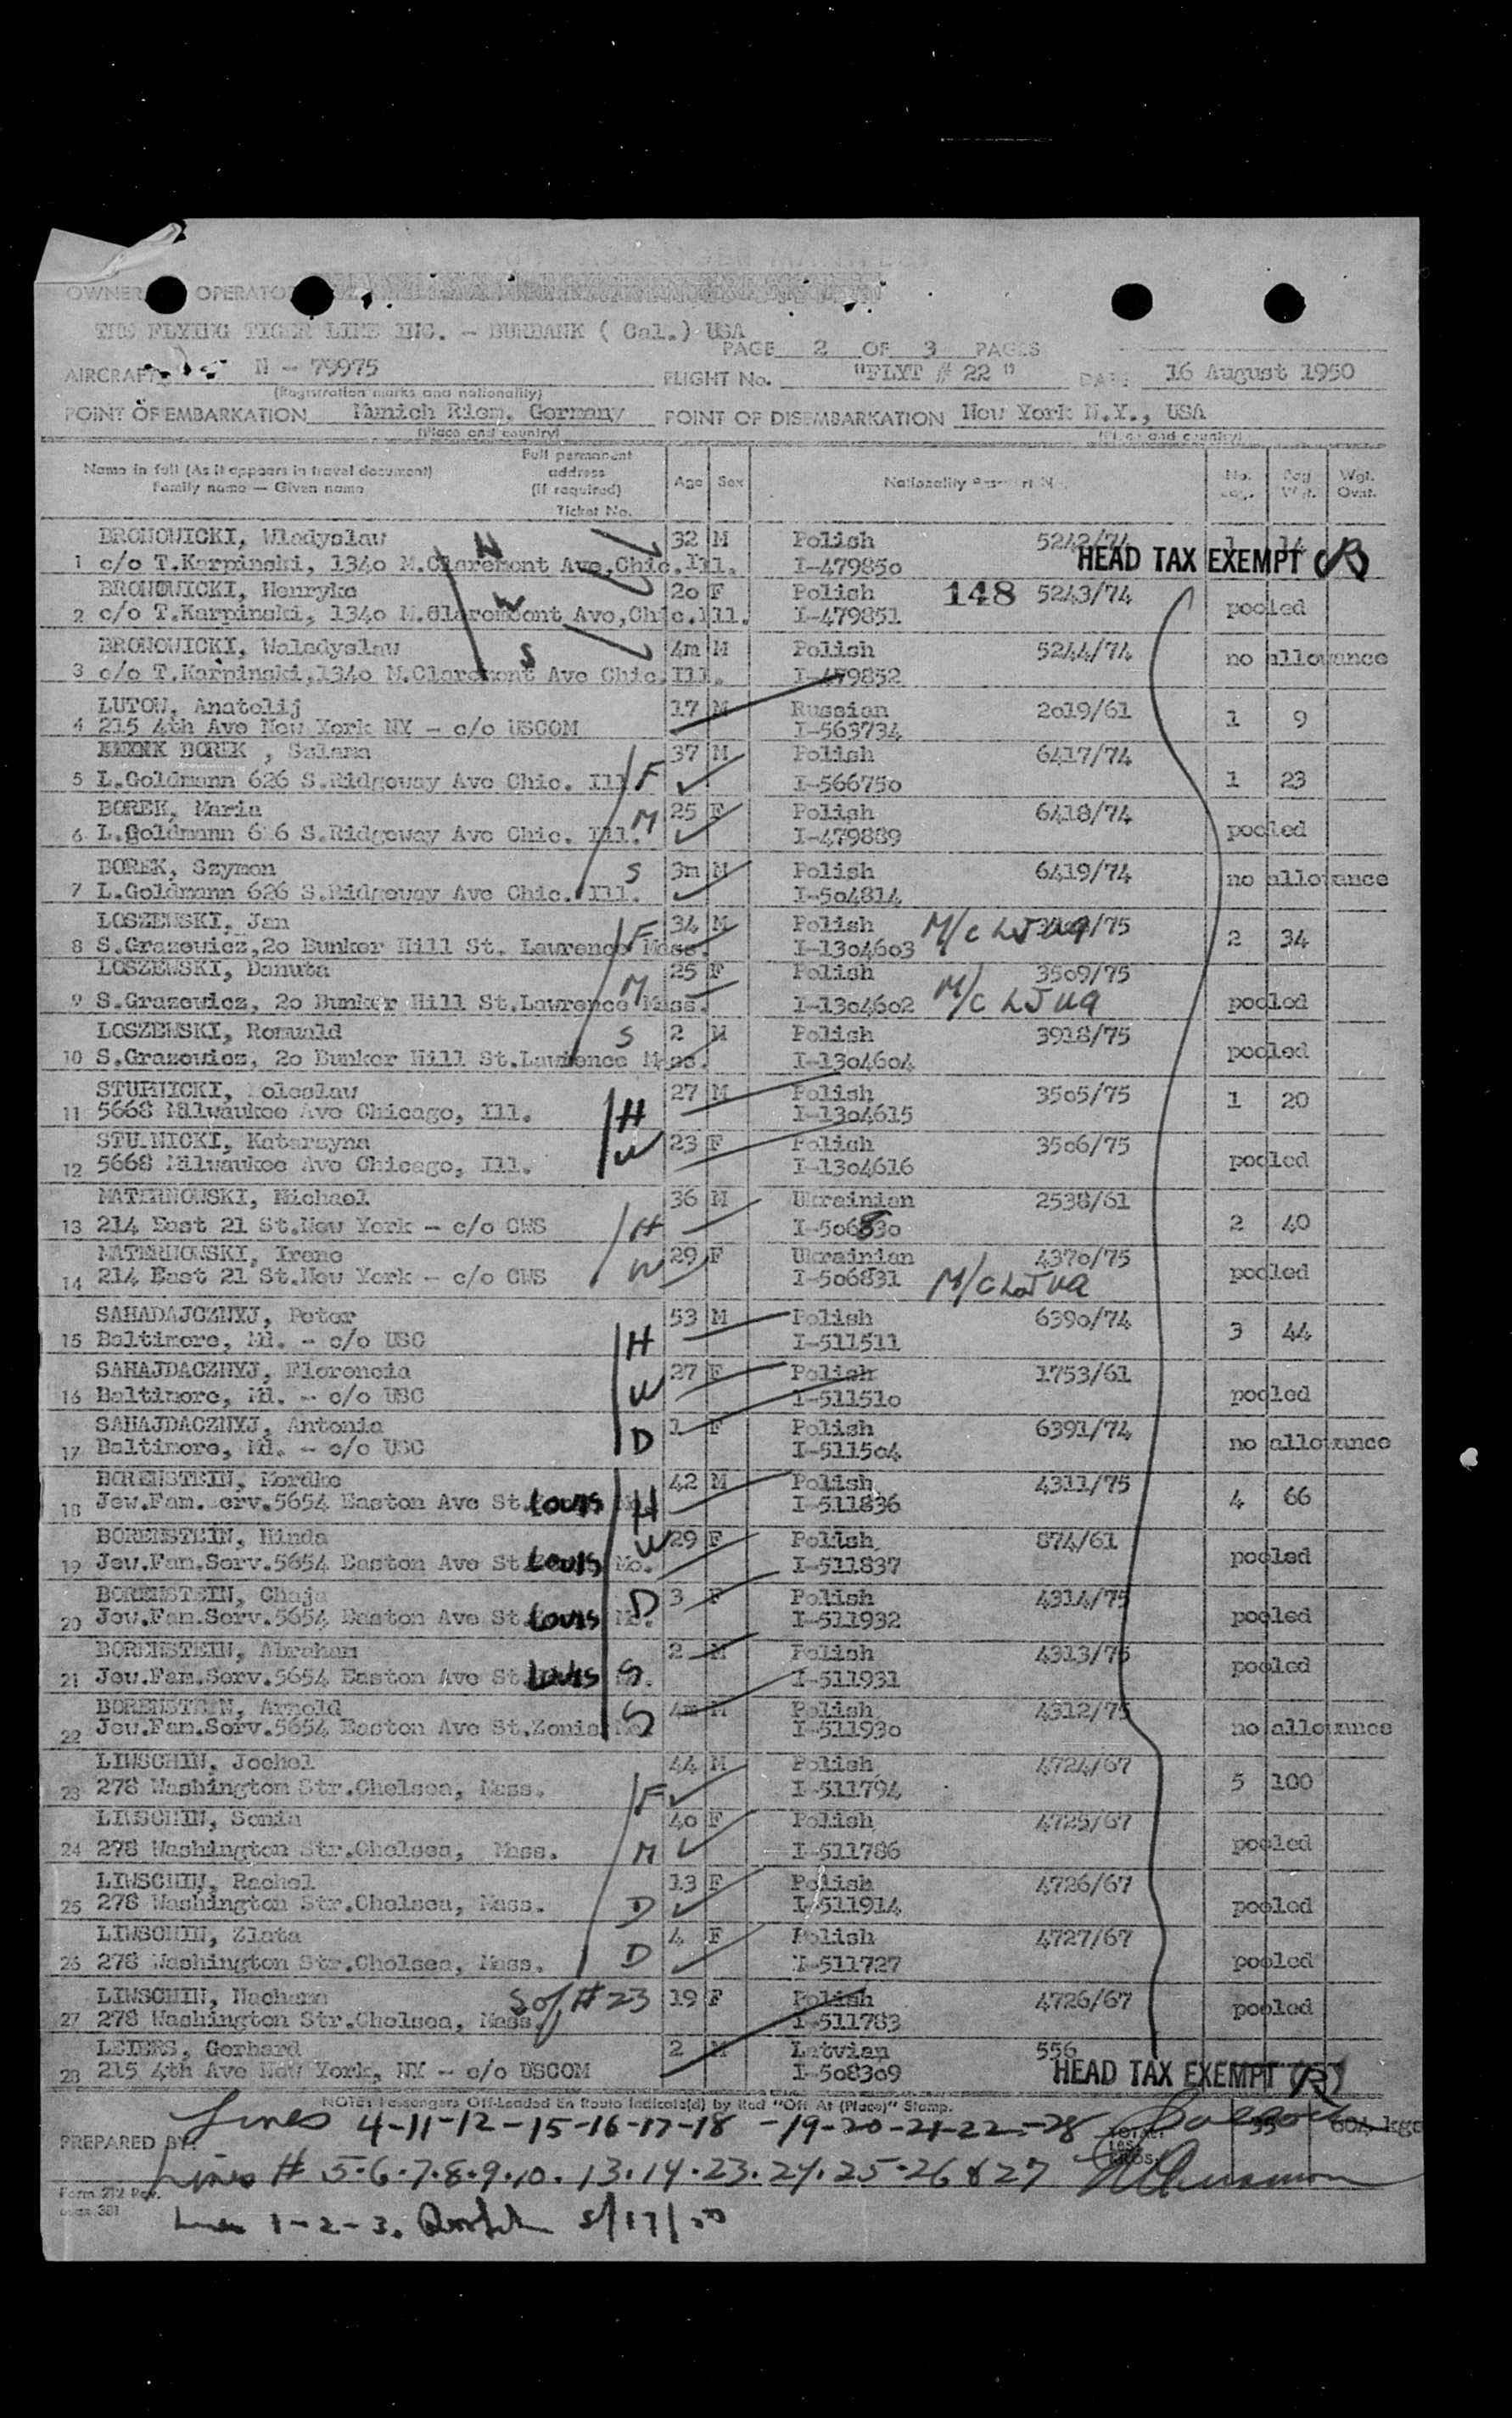 AIR PASSENGER MANIFEST
OWNER OPERATOR
THE FLYING TIGER LINE INC. - BURBANK ( Cal.) USA
PAGE 2 OF 3 PAGES
AIRCRAFT N - 79975 FLIGHT No. "FLYT # 22 " DATE 16 August 1950
(Registration marks and nationality)
POINT OF EMBARKATION Munich Riem, Germany POINT OF DISEMBARKATION New York N.Y., USA
(Place and country) (Place and country)
Name in full (As it appears in travel document) Full permanent address (If required) Age Sex Nationality Passport No. No. Wgt. Wgt.
Family name — Given name Ticket No. Ovat.
BRONOWICKI, Wladyslaw H 32 M Polish 5242/74 1 14
1 c/o T.Karpinski, 1340 M.Claremont Ave,Chic.Ill. I-479850 HEAD TAX EXEMPT
BRONOWICKI, Henryka W 20 F Polish 148 5243/74 pooled
2 c/o T.Karpinski, 1340 M.Claremoont Ave,Chic.Ill. I-479851
BRONOWICKI, Waladyslaw S 4m M Polish 5244/74 no allowance
3 c/o T.Karpinski,1340 M.Claremont Ave Chic.Ill. I-479852
LUTOW, Anatolij 17 M Russian 2019/61 1 9
4 215 4th Ave New York NY - c/o USCOM I-563734
BOREK , Salama 37 M Polish 6417/74
5 L.Goldmann 626 S.Ridgeway Ave Chic. Ill F I-566750 1 23
BOREK, Maria 25 F Polish 6418/74
6 L.Goldmann 626 S.Ridgeway Ave Chic. Ill. M I-479889 pooled
BOREK, Szymon S 3m M Polish 6419/74
7 L.Goldmann 626 S.Ridgeway Ave Chic. Ill. I-504814 no allowance
LOSZEWSKI, Jan F 34 M Polish /75 2 34
8 S.Grazewicz,20 Bunker Hill St. Lawrence Mass. I-1304603
LOSZEWSKI, Danuta M 25 F Polish 3509/75
9 S.Grazewicz, 20 Bunker Hill St.Lawrence Mass. I-1304602 pooled
LOSZEWSKI, Romuald S 2 M Polish 3918/75
10 S.Grazewicz, 20 Bunker Hill St.Lawrence Mass. I-1304604 pooled
STURNICKI, Boleslaw 27 M Polish 3505/75 1 20
11 5668 Milwaukee Ave Chicago, Ill. H I-1304615
STURNICKI, Katarzyna W 23 F Polish 3506/75
12 5668 Milwaukee Ave Chicago, Ill. I-1304616 pooled
MATERNOWSKI, Michael 36 M Ukrainian 2538/61
13 214 East 21 St.New York - c/o CWS H I-506830 2 40
MATERNOWSKI, Irene W 29 F Ukrainian 4370/75
14 214 East 21 St.New York - c/o CWS I-506831 pooled
SAHADAJCZNYJ, Peter 53 M Polish 6390/74
15 Baltimore, Md. - c/o USC H I-511511 3 44
SAHAJDACZNYJ, Florencia 27 F Polish 1753/61
16 Baltimore, Md. - c/o USC W I-511510 pooled
SAHAJDACZNYJ, Antonia 1 F Polish 6391/74
17 Baltimore, Md. - c/o USC D I-511504 no allowance
BORENSTEIN, Mordko 42 M Polish 4311/75
18 Jew.Fam.Serv.5654 Easton Ave St.Louis H I-511836 4 66
BORENSTEIN, Hinda W 29 F Polish 874/61
19 Jew.Fam.Serv.5654 Easton Ave St.Louis Mo. I-511837 pooled
BORENSTEIN, Chaja D 3 F Polish 4314/75
20 Jew.Fam.Serv.5654 Easton Ave St.Louis Mo. I-511932 pooled
BORENSTEIN, Abraham 2 M Polish 4313/75
21 Jew.Fam.Serv.5654 Easton Ave St.Louis S I-511931 pooled
BORENSTEIN, Arnold S 4m M Polish 4312/75
22 Jew.Fam.Serv.5654 Easton Ave St.Zonis Mo. I-511930 no allowance
LIWSCHIN, Jochel 44 M Polish 4724/67
23 278 Washington Str.Chelsea, Mass. F I-511794 5 100
LIWSCHIN, Sonia 40 F Polish 4725/67
24 278 Washington Str.Chelsea, Mass. M I-511786 pooled
LIWSCHIN, Rachel 13 F Polish 4726/67
25 278 Washington Str.Chelsea, Mass. D I-511914 pooled
LIWSCHIN, Zlata 4 F Polish 4727/67
26 278 Washington Str.Chelsea, Mass. D I-511727 pooled
LIWSCHIN, Nachama S of #23 19 F Polish 4726/67 pooled
27 278 Washington Str.Chelsea, Mass. I-511783
LEIERS, Gerhard 2 M Latvian 556
28 215 4th Ave New York, NY - c/o USCOM I-508309 HEAD TAX EXEMPT
NOTE: Passengers Off-Loaded En Route Indicate(d) by Red "Off At (Place)" Stamp.
Lines 4-11-12-15-16-17-18-19-20-21-22-28
PREPARED BY:
Lines # 5.6.7.8.9.10.13.14.23.24.25.26 & 27
Form 212 Rev.
Lines 1-2-3. 8/17/50